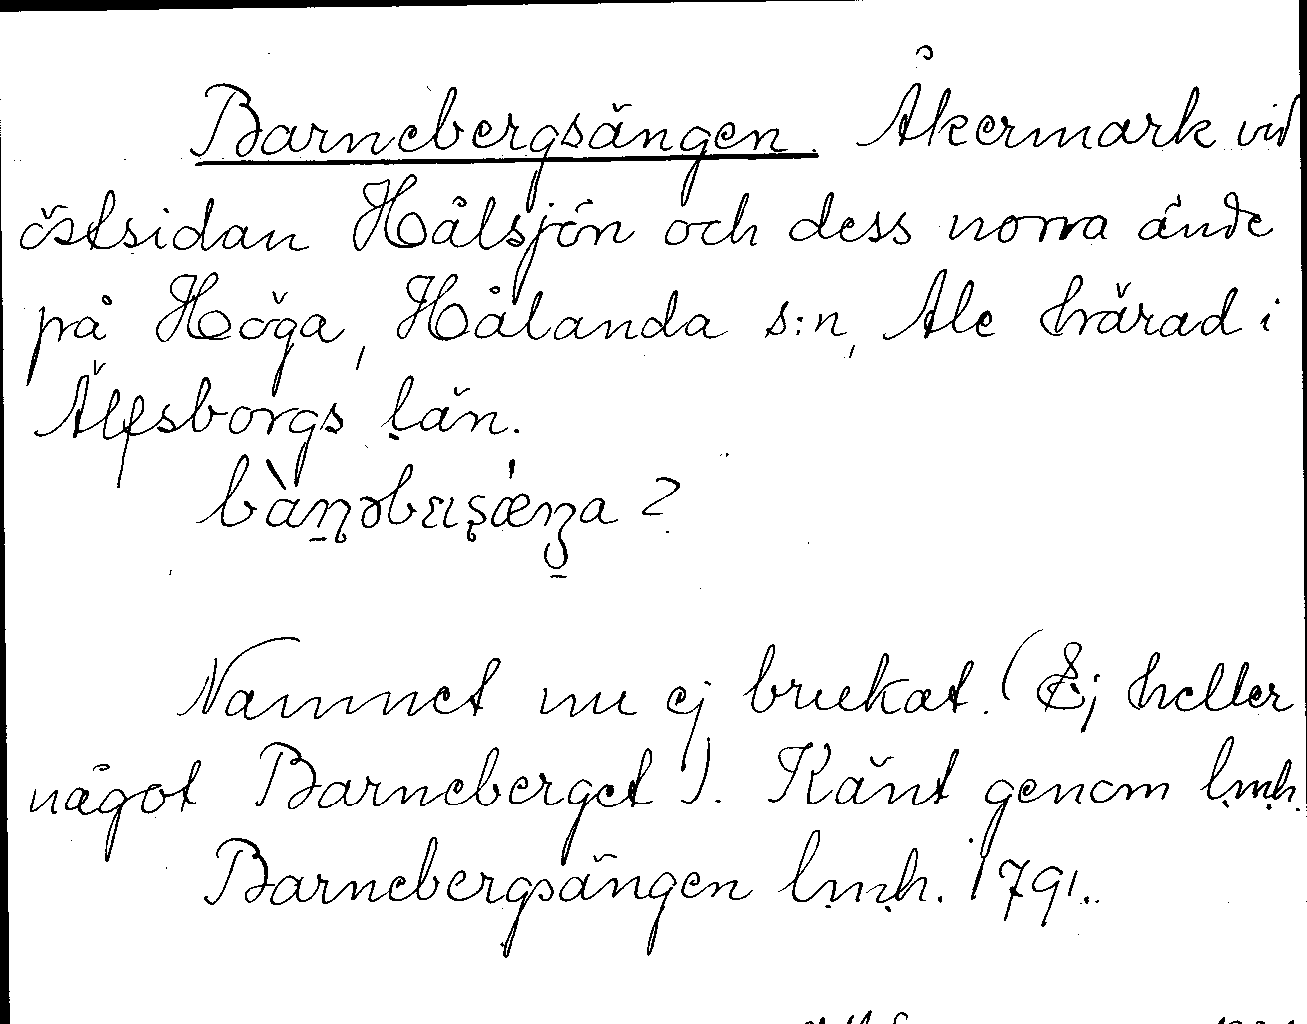 Barnebergsängen. Åkermark vid
östsidan Hålsjön och dess norra ände
på Höga, Hålanda s:n, Ale härad i
Älfsborgs län.
Namnet nu ej brukat. (Ej heller
något Barneberget). Känt genom lmh.
Barnebergsängen lmh. 1791.